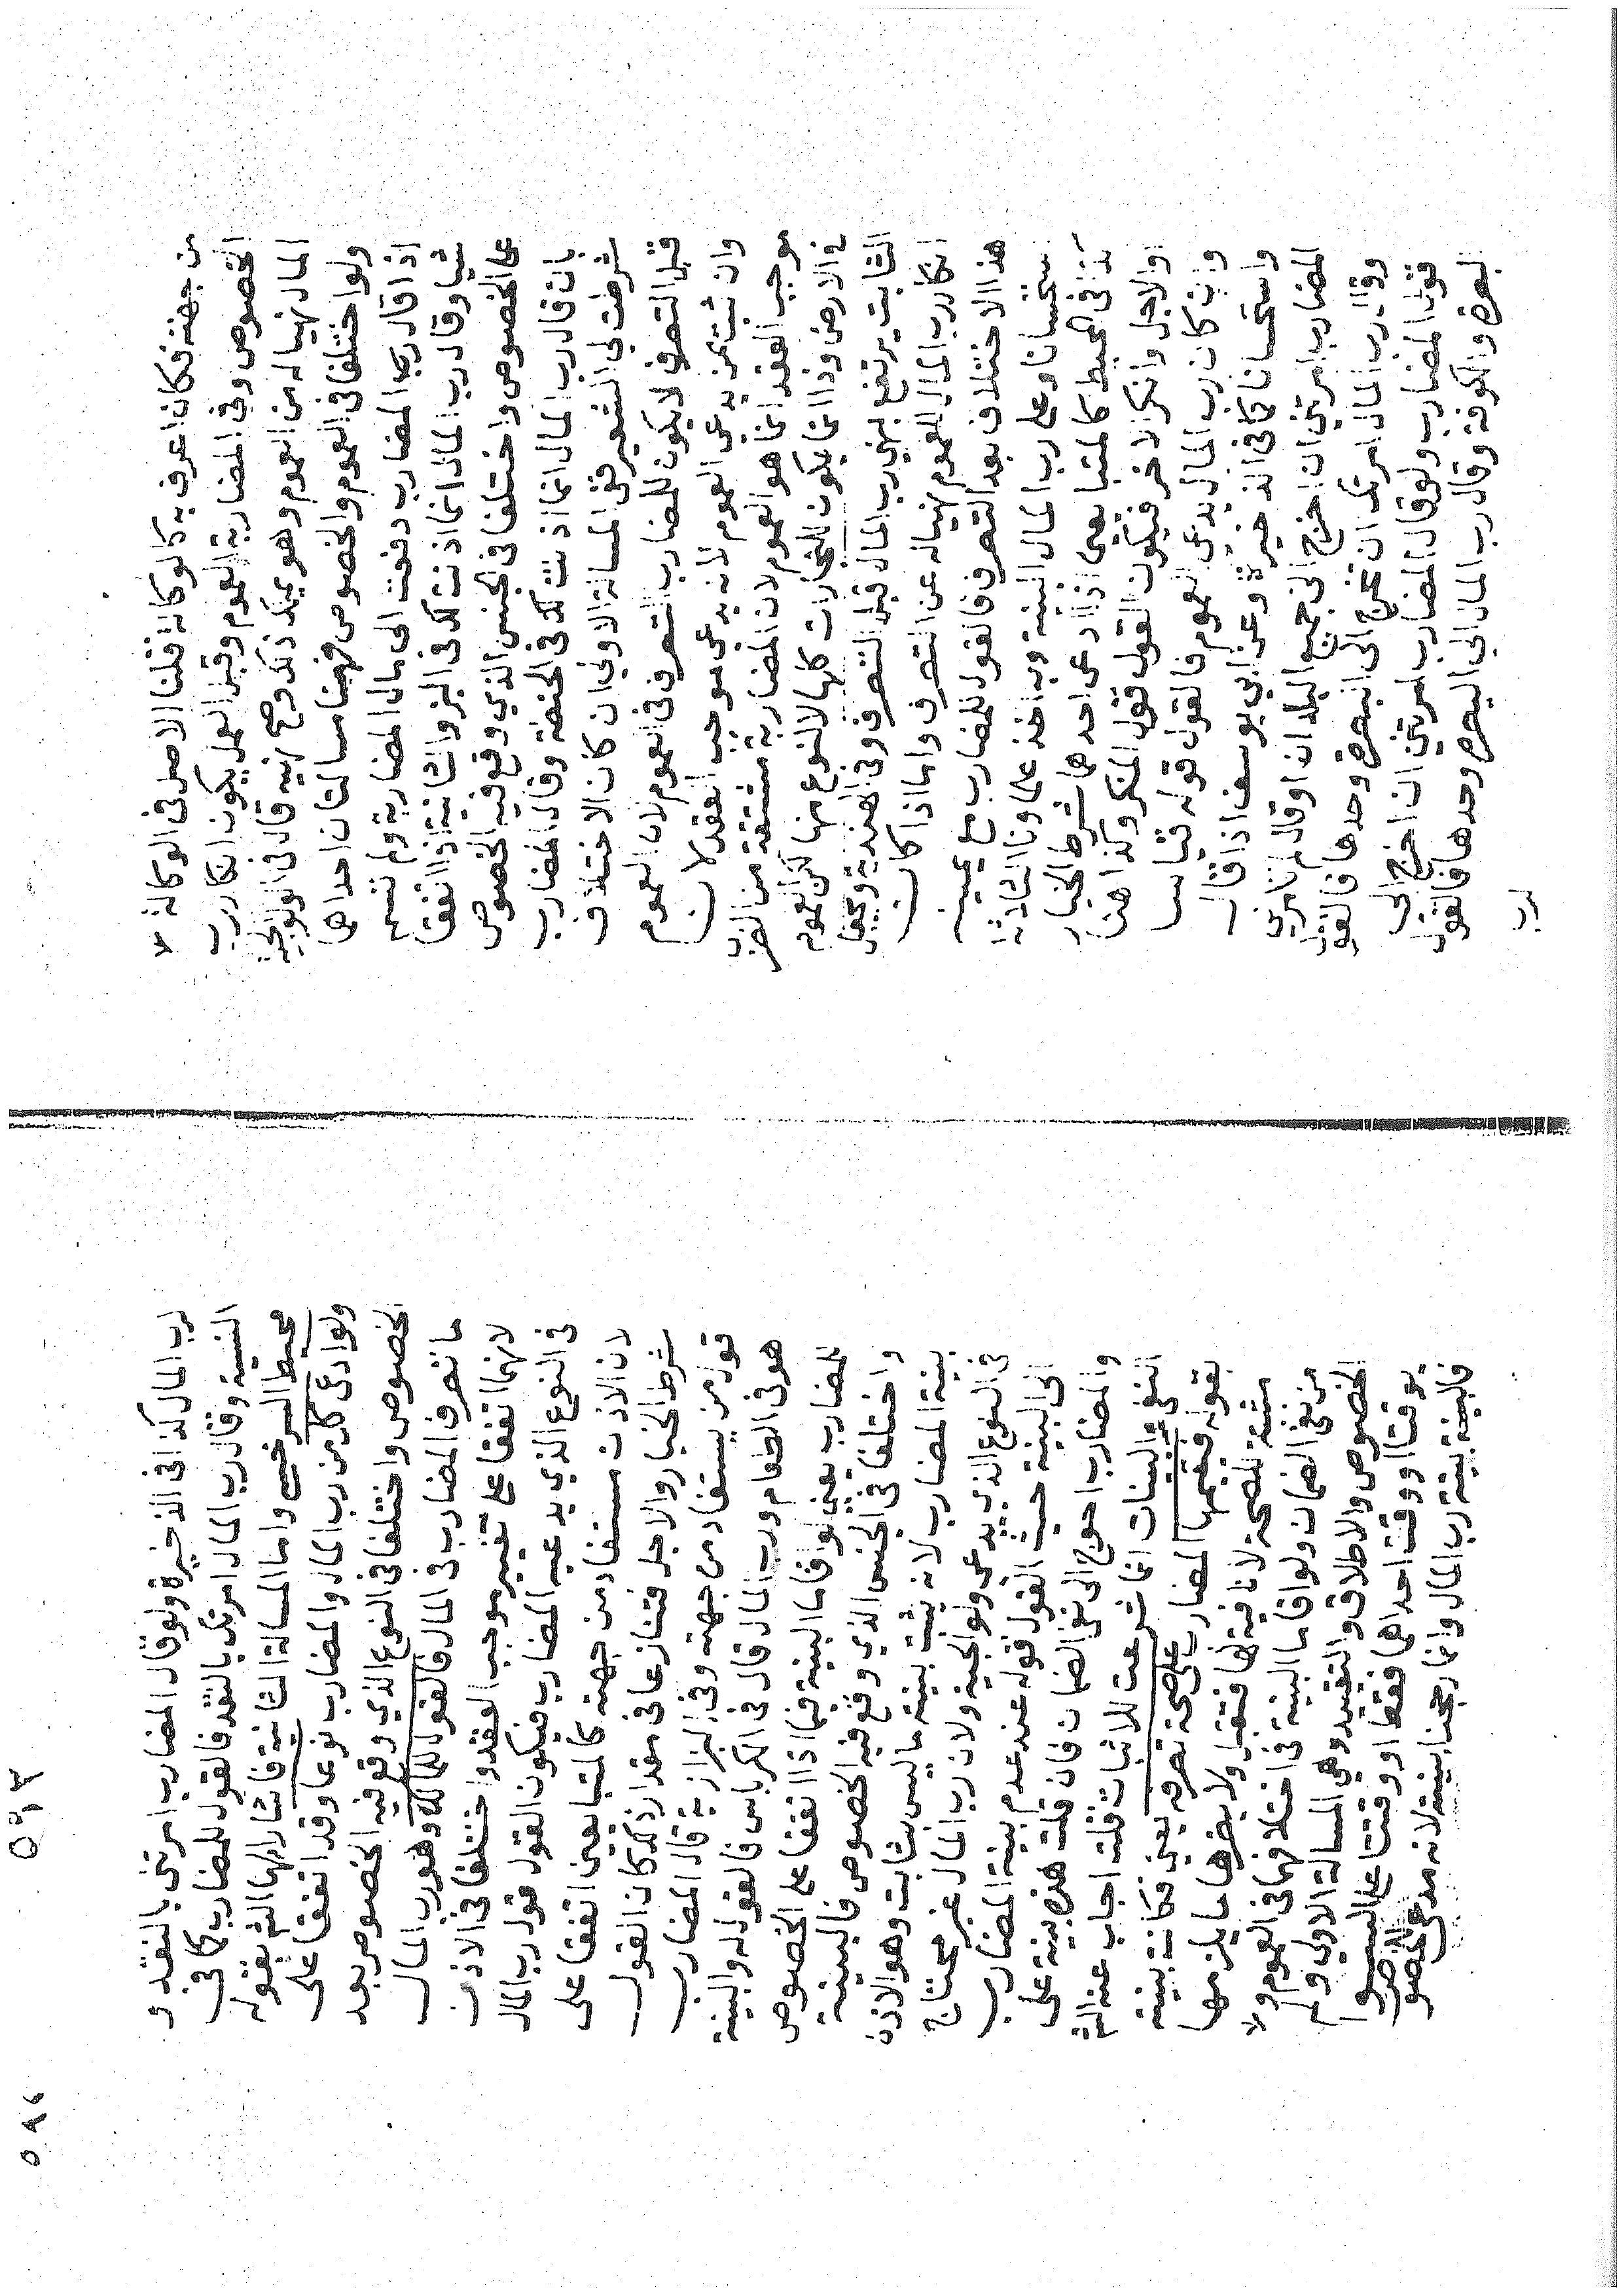 من جهته فكان اعرف به كالوكالة قلنا الاصل في الوكالة لا
الخصوص وفي المضاربة العموم وقبل العمل يكون انكار رب
المال نهيا له من العموم وهو يملك ذلك وصح نهيه قال في الولوالجية
ولو اختلفا في العموم والخصوص فهنا مسالتان احداها
اذا قال رجل المضارب دفعت الى مال المضاربة ولم تسم
شيا وقال رب المال انما اذنت لك في البز والثانية اذا اتفقا
على الخصوص واختلفا في الجنس الذي وقع فيه الخصوص
بان قال رب المال انما اذنت لك في الحنطة وقال المضارب
شرطت لي الشعير ففي المسالة الاولى ان كان الاختلاف
قبل التصرف لا يكون للمضارب التصرف في العموم لان العموم
وان ثبت بمن يدعي العموم لانه يدعي موجب العقد لان
موجب العقد انما هو العموم لان المضاربة مشتقة من الضرب
في الارض وذا انما يكون التجارات كلها لا لنوع منها لكن العموم
الثابت يرتفع بنهي رب المال قبل التصرف وفي الهندية ويجعل
انكار رب المال للعموم نهيا له عن التصرف واما اذا كان
هذا الاختلاف بعد التصرف فالقول للمضارب مع يمينه
استحسانا وعلى رب المال البينة وبه اخذ علماونا الثلاثة
كذا في المحيط كالمتبايعين اذا ادعى احدهما شرط الخيار
او الاجل وانكر الاخر فيكون القول قول المنكر وكذا هنا
وان كان رب المال يدعي العموم فالقول قوله قياسا
واستحسانا كما في الذخيرة وعن ابي يوسف اذا قال
المضارب امرتني ان اخرج الى جميع البلدان او قال لم تامرني
وقال رب المال امرتك ان تخرج الى البصرة وحدها فالقول
قول المضارب ولو قال المضارب امرتني ان اخرج الى
البصرة والكوفة وقال رب المال الي البصرة وحدها فالقول
لرب
٥٩٣
٥٩٤
لرب المال كذا في الذخيرة ولو قال المضارب امرتني بالنقد و
النسية وقال رب المال امرتك بالنقد فالقول للمضارب كما في
محيط السرخسي واما المسالة الثانية فاشار اليها الشم بقوله
ولو ادعى كل من رب المال والمضارب نوعا وقد اتفقا على
الخصوص واختلفا في النوع الذي وقع فيه الخصوص بعد
ما تصرف المضارب في المال فالقول للمالك وهو رب المال
لانهما اتفقا على تغيير موجب العقد واختلفا في الاذن
في النوع الذي يدعيه المضارب فيكون القول قول رب المال
لان الاذن مستفاد من جهته كالمتبايعين اتفقا على
شرط الخيار والاجل فتنازعا في مقدار ذلك كان القول
قول من يستفاد من جهته وفي البزازية قال المضارب
هو في الطعام ورب المال قال في الكرباس فالقول له والبينة
للمضارب يعني لو اقاما البينة فيما اذا اتفقا على الخصوص
واختلفا في الجنس الذي وقع فيه الخصوص فالبينة
بينة المضارب لانه يثبت ببينته ما ليس بثابت وهو الاذن
في النوع الذي يدعي ولوالجية ولان رب المال غير محتاج
الى البينة حيث القول قوله عند عدم بينة المضارب
والمضارب احوج الى نفي الضمان فان قلت هذه بينة على
النفي والبينات انما شرعت للاثبات قلت اجاب عنه الشم
بقوله فيقيمها المضارب على صحة تصرفه يعني فكانت بينة
مثبتة للصحة لا نافية لها فتقبل ولا يضرها ما يلزمها
من نفي الضمان ولو اقاما البينة في اختلافهما في العموم ولا
الخصوص والاطلاق والتقييد وهي المسالة الاولى ولم
يوقتا او وقت احداهما فقط او وقتتا على السوا
فالبينة بينة رب المال وانما رجحنا بينته لانه مدعي الخصو